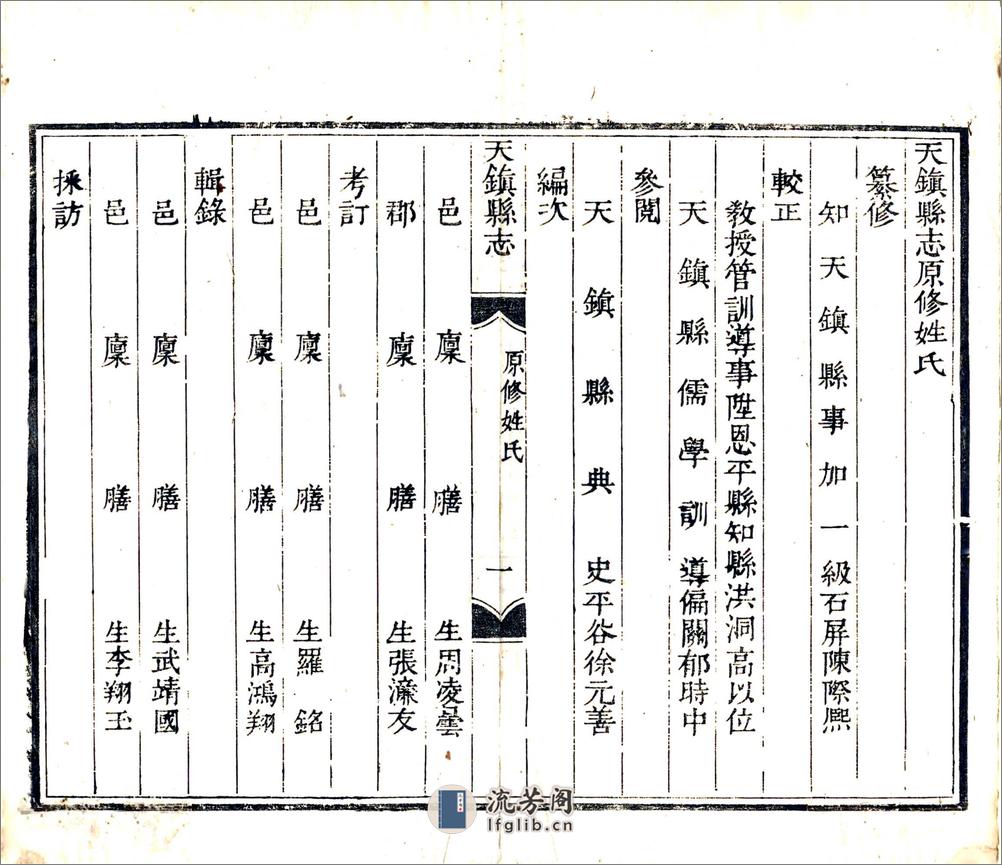 天鎭縣志原修姓氏
纂修
知天鎭縣事加一級石屏陳際熙
較正
教授管訓導事陞恩平縣知縣洪洞高以位
天鎭縣儒學訓導偏關郁時中
參閱
天鎭縣典史平谷徐元善
編次
天鎭縣志
原修姓氏
一
邑廩膳生周凌曇
郡廩膳生張濂友
考訂
邑廩膳生羅銘
邑廩膳生高鴻翔
輯錄
邑廩膳生武靖國
邑廩膳生李翔玉
採訪
流芳阁
lfglib.cn